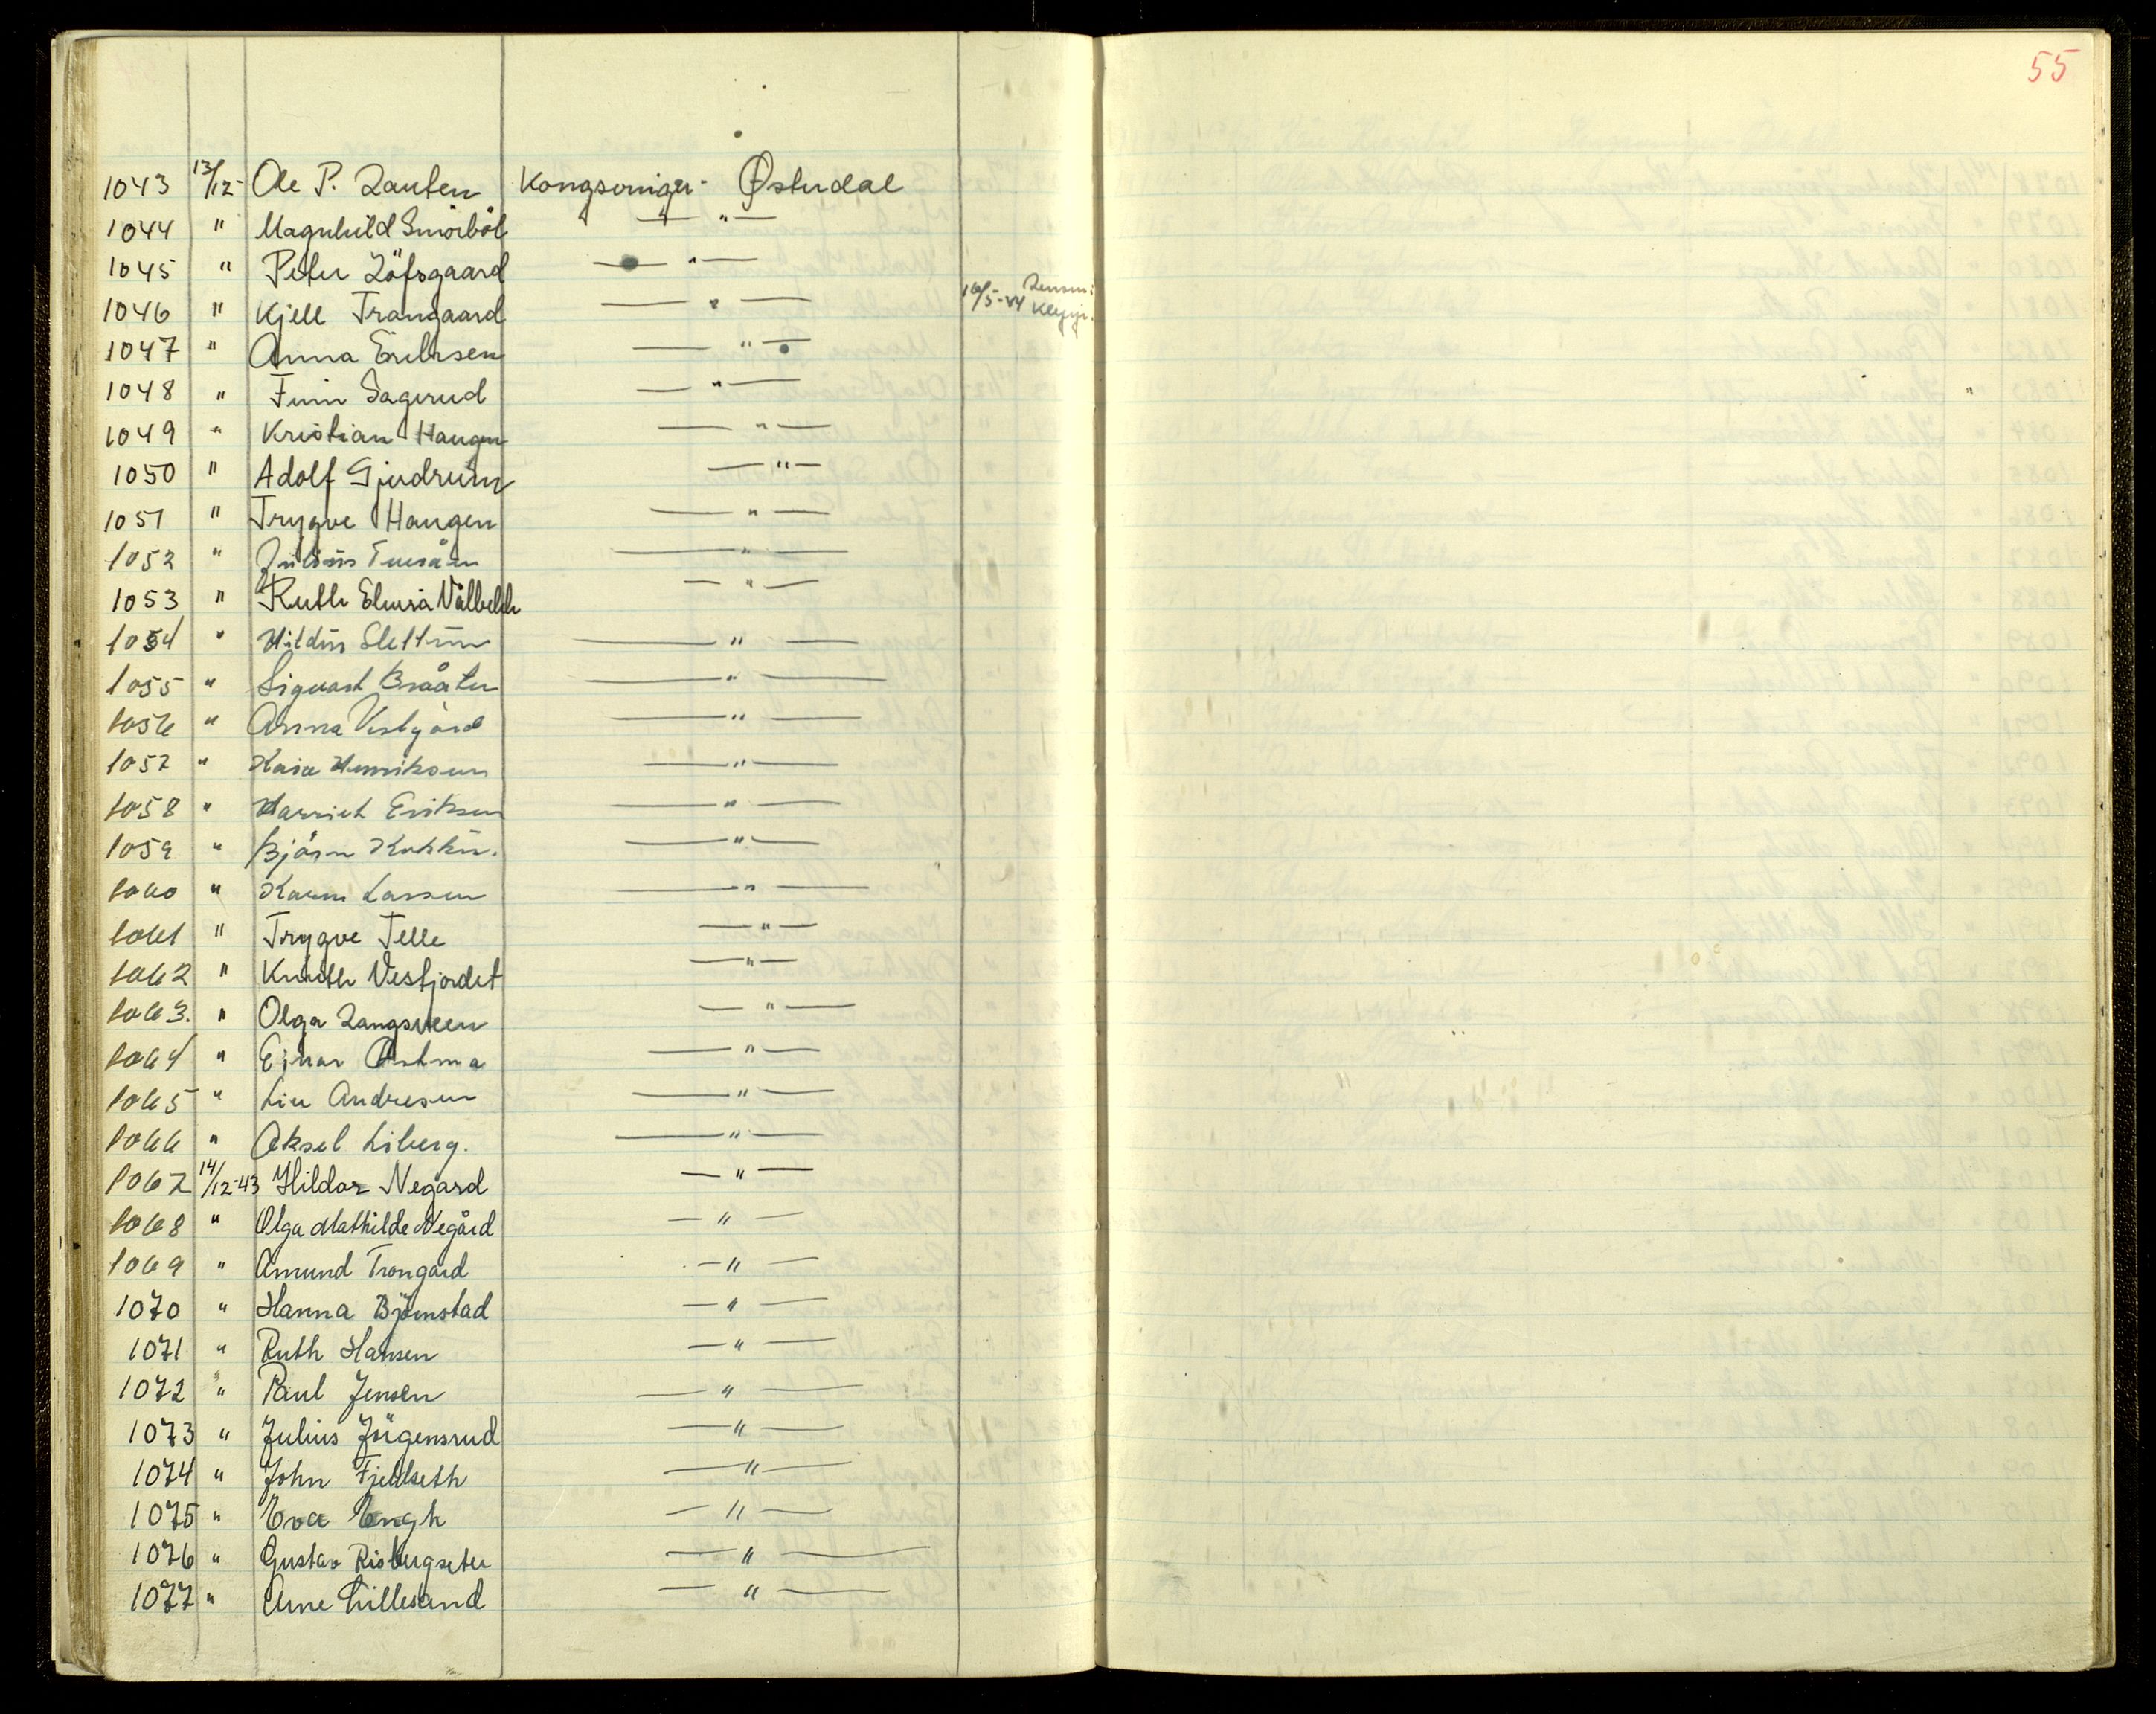 55
1043 13/12- Ole P. Lauten Kongsvinger- Østerdal
1044 " Magnhild Smörböl — " —
1045 " Peter Löfsgaard — " —
1046 " Kjell Trangaard — " — 16/5-44
1047 " Anna Eriksen — " —
1048 " Finn Sagerud — " —
1049 " Kristian Haugen — " —
1050 " Adolf Gjerdrum — " —
1051 " Trygve Haugen — " —
1052 " Julius — " —
1053 " Ruth — " —
1054 " — " —
1055 " Sigvart Bråten — " —
1056 " Anna Vestgård — " —
1057 " Kaia Henriksen — " —
1058 " Harriet Eriksen — " —
1059 " Björn — " —
1060 " Karen Larsen — " —
1061 " Trygve Telle — " —
1062 " Vesfjordet — " —
1063. " Olga Langsveen — " —
1064 " Einar — " —
1065 " Liv Andresen — " —
1066 " Aksel Liberg. — " —
1067 14/12-43 Hildar Negard — " —
1068 " Olga Mathilde Negård — " —
1069 " Amund Trongård — " —
1070 " Hanna Björnstad — " —
1071 " Ruth Hansen — " —
1072 " Paul Jensen — " —
1073 " Julius Jörgensrud — " —
1074 " John Fjeldseth — " —
1075 " Eva Engh — " —
1076 " Gustav Risbergseter — " —
1077 " Arne Lillesand — " —